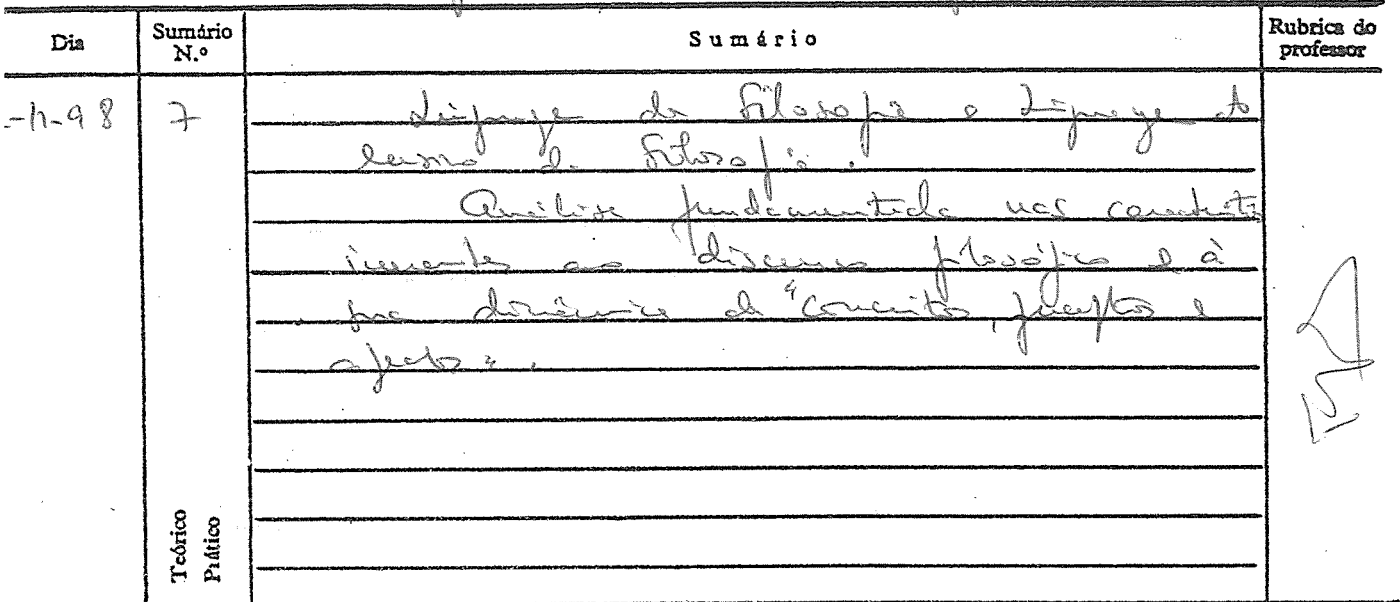 Dia
Sumário N.º
Sumário
Rubrica do professor
-11-98
7
Linguagem da Filosofia e Linguagem do
ensino da Filosofia.
Análise fundamentada nas
ao discurso filosófico e à
sua dinâmica de "conceitos, perceptos e
afectos".
Teórico
Prático